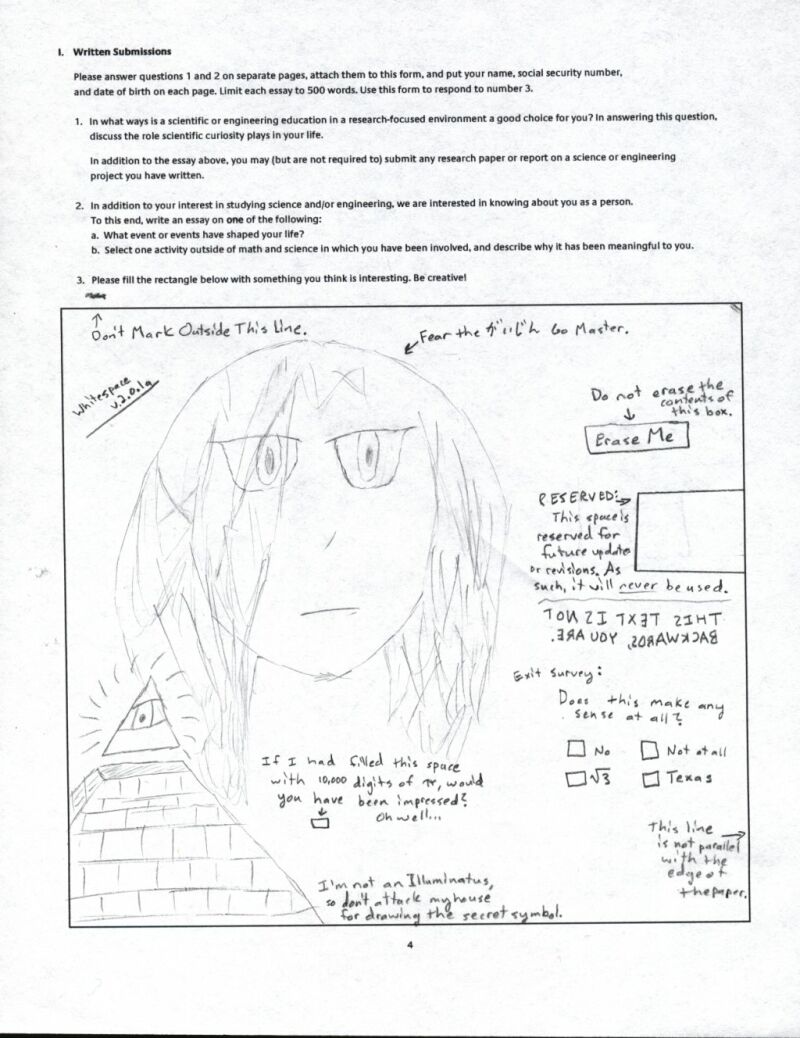 I. Written Submissions
Please answer questions 1 and 2 on separate pages, attach them to this form, and put your name, social security number,
and date of birth on each page. Limit each essay to 500 words. Use this form to respond to number 3.
1. In what ways is a scientific or engineering education in a research-focused environment a good choice for you? In answering this question,
discuss the role scientific curiosity plays in your life.
In addition to the essay above, you may (but are not required to) submit any research paper or report on a science or engineering
project you have written.
2. In addition to your interest in studying science and/or engineering, we are interested in knowing about you as a person.
To this end, write an essay on one of the following:
a. What event or events have shaped your life?
b. Select one activity outside of math and science in which you have been involved, and describe why it has been meaningful to you.
3. Please fill the rectangle below with something you think is interesting. Be creative!
Don't Mark Outside This Line.
Fear the がいじん Go Master.
Whitespace
v.2.0.1a
Do not erase the
contents of
this box.
Erase Me
RESERVED:
This space is
reserved for
future update
or revisions. As
such, it will never be used.
THIS TEXT IS NOT
BACKWARDS, YOU ARE.
Exit survey:
Does this make any
sense at all?
No
Not at all
√3
Texas
If I had filled this space
with 10,000 digits of π, would
you have been impressed?
Oh well...
This line
is not parallel
with the
edge of
the paper.
I'm not an Illuminatus,
so don't attack my house
for drawing the secret symbol.
4